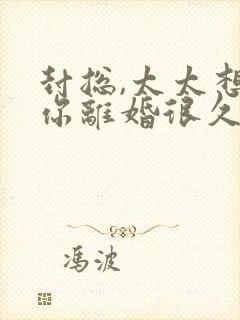 封总,太太想
你離婚很久
冯波